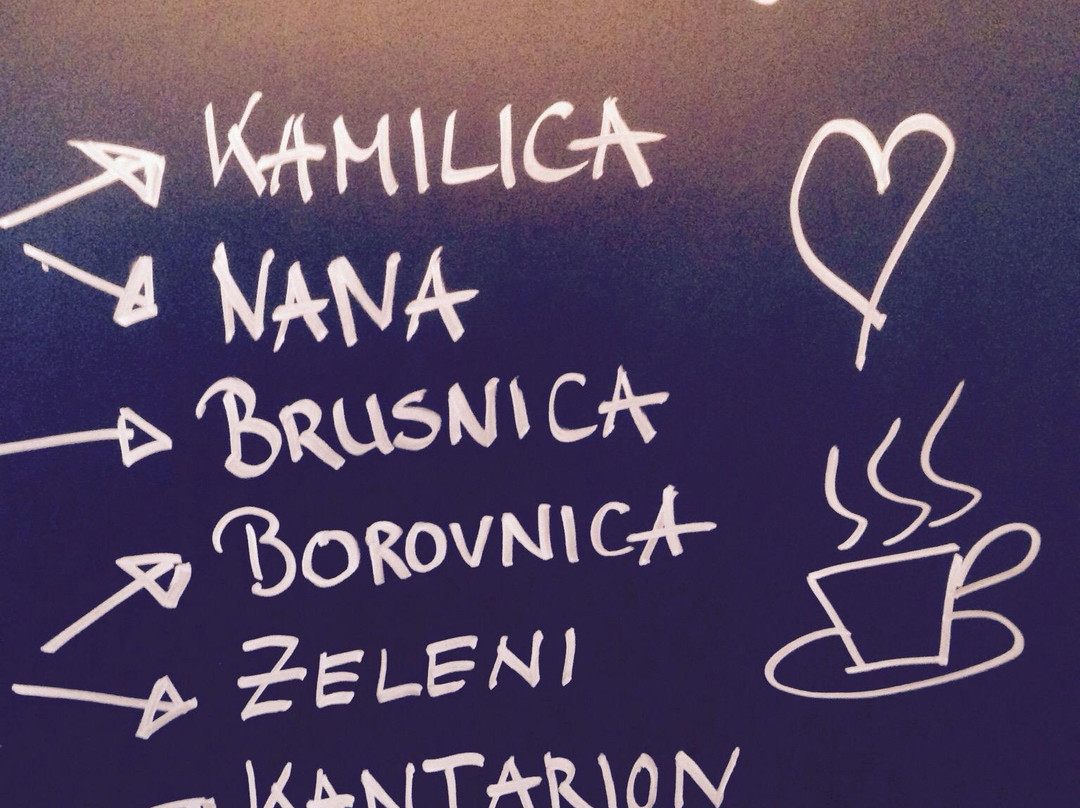 KAMILICA
NANA
BRUSNICA
BOROVNICA
ZELENI
KANTARION